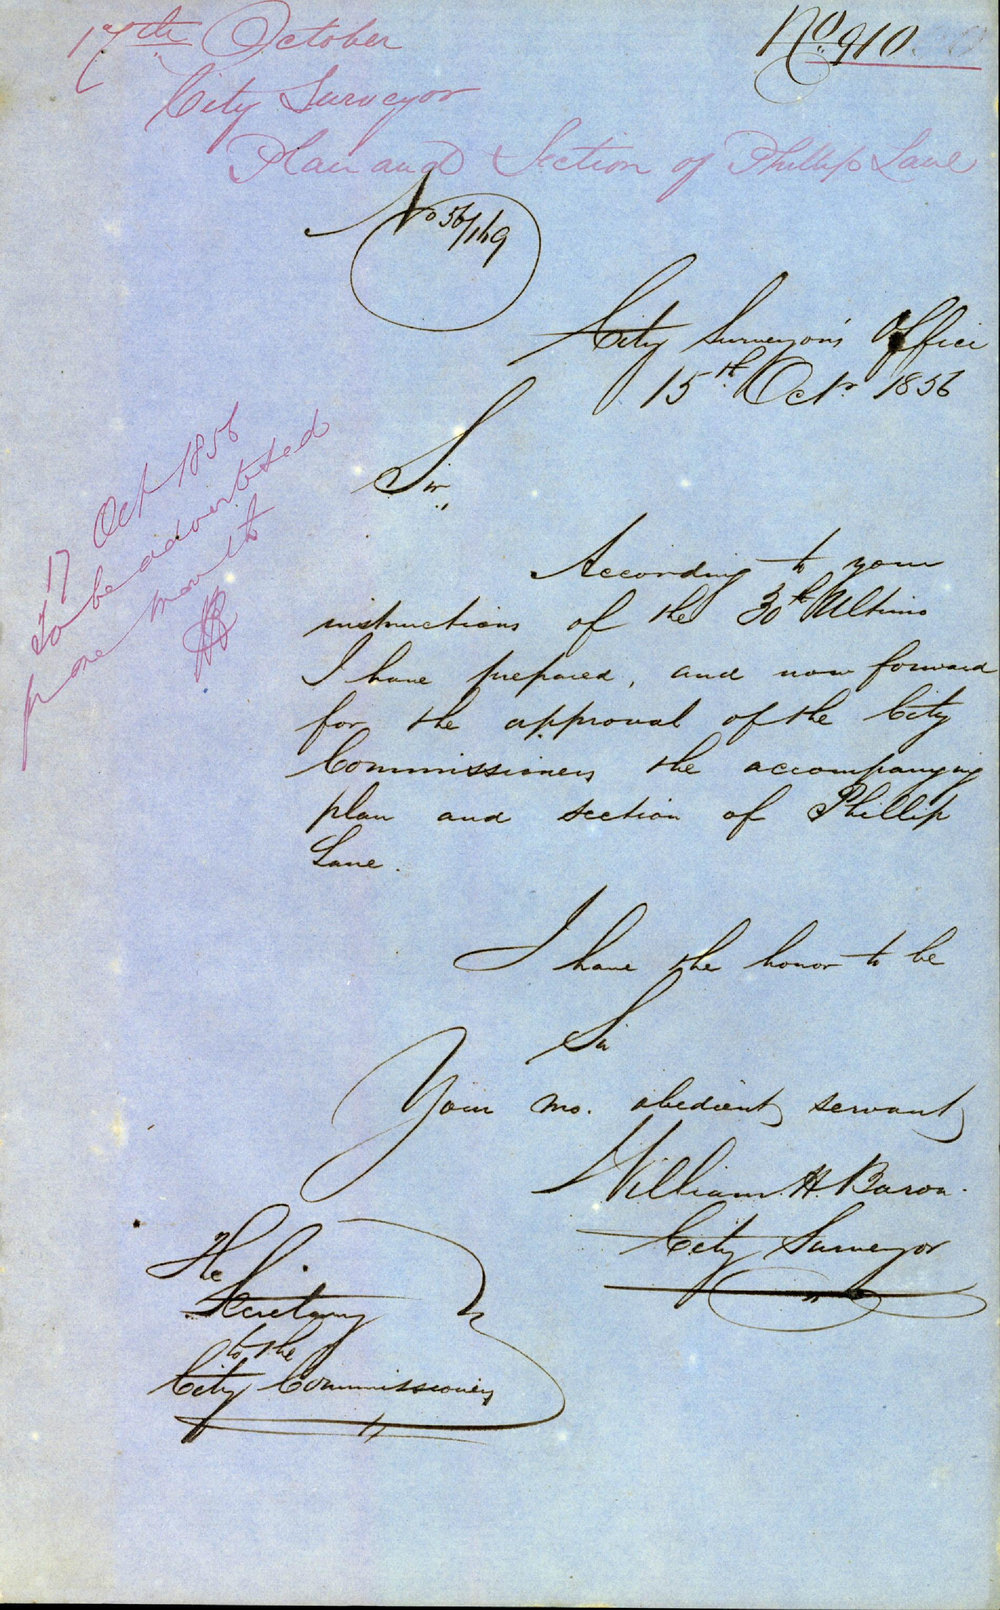 17th October
No. 910.
City Surveyor
Plan and Section of Phillip Lane
No 56/169
City Surveyor's Office
15th Octr 1856
Sir,
17 Oct 1856
To be advertised
for one month
According to your
instructions of the 30th Ultimo
I have prepared, and now forward
for the approval of the City
Commissioners the accompanying
plan and section of Phillip
Lane.
I have the honor to be
Sir
Your mo. obedient servant
William H. Baron.
City Surveyor
The
Secretary
to the
City Commissioners